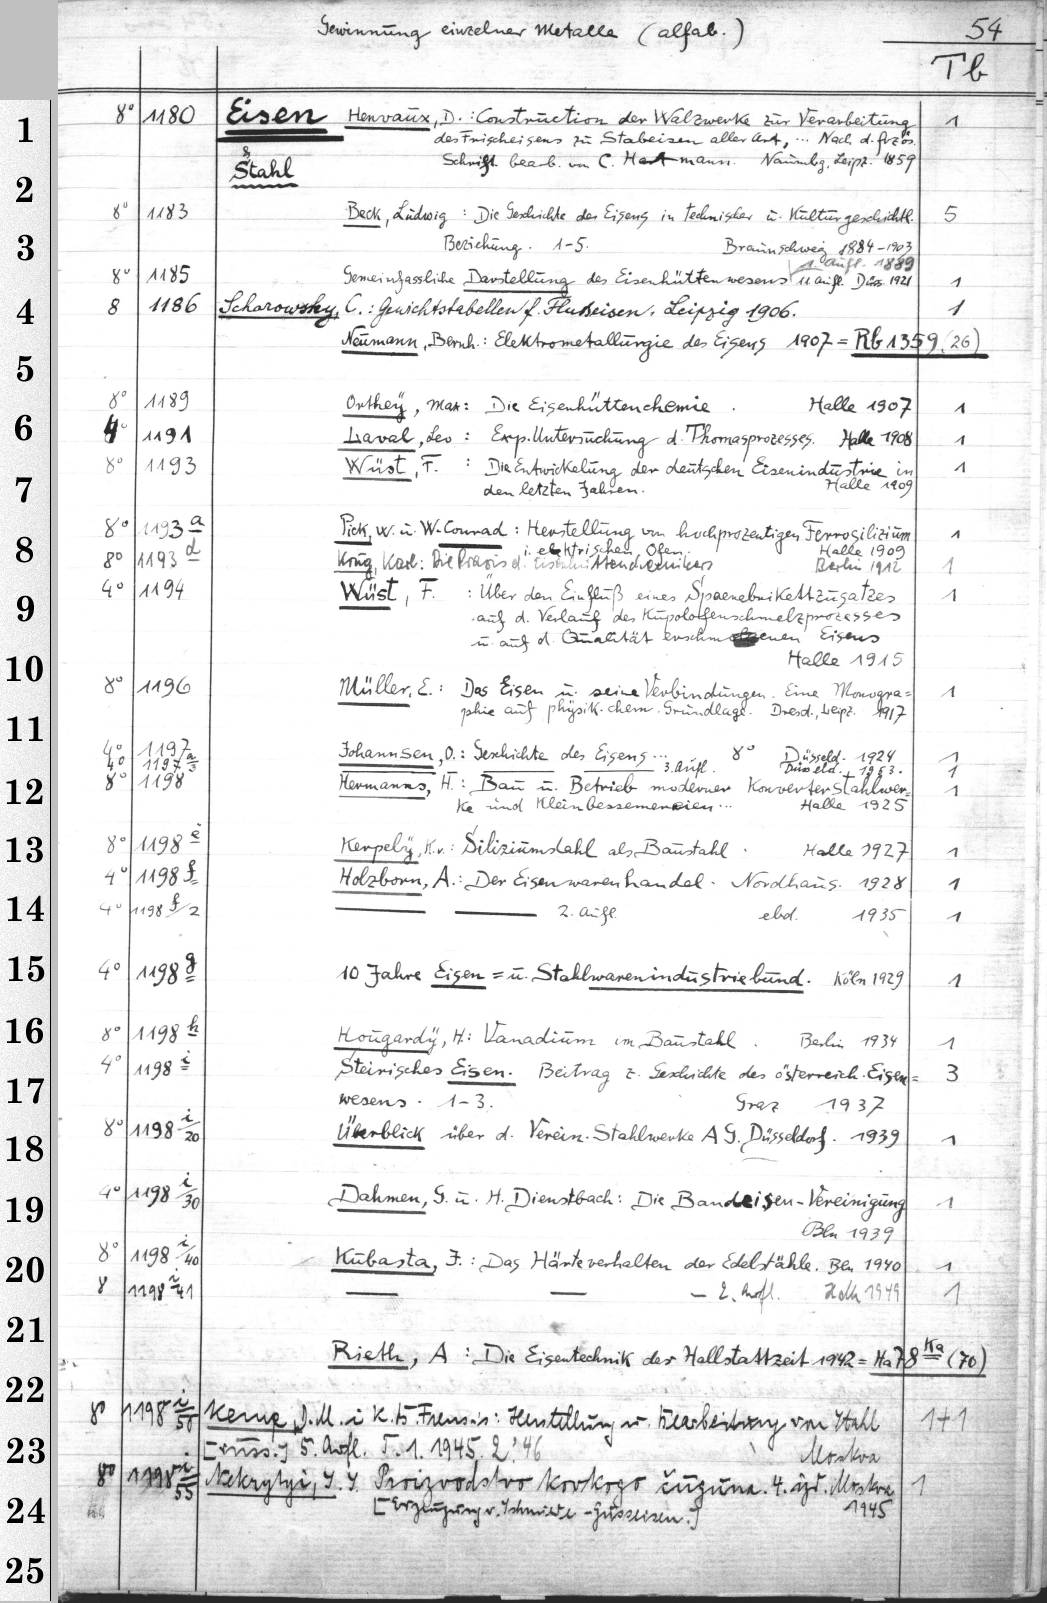 Gewinnung einzelner Metalle (alfab.)
54
Tb
1 8° 1180 Eisen Henvaux, D.: Construction der Walzwerke zur Verarbeitung 1
des Frischeisens zu Stabeisen aller Art, ... Nach d. frzös.
& Stahl Schrift bearb. von C. Hartmann. Naumbg, Leipz. 1859
2
8° 1183 Beck, Ludwig : Die Geschichte des Eisens in technischer u. Kulturgeschichtl. 5
3 Beziehung. 1-5. Braunschweig 1884-1903
1. Aufl. 1889
8° 1185 Gemeinfassliche Darstellung des Eisenhüttenwesens 11 aufl. Düss 1921 1
4 8 1186 Scharowsky, C.: Gewichtstabellen f. Flußeisen. Leipzig 1906. 1
Neumann, Bernh.: Elektrometallurgie des Eisens 1907 = Rb 1359 (26)
5
8° 1189 Orthey, Max: Die Eisenhüttenchemie. Halle 1907 1
6 4° 1191 Laval, Leo : Exp. Untersuchung d. Thomasprozesses. Halle 1908 1
8° 1193 Wüst, F. : Die Entwickelung der deutschen Eisenindustrie in 1
7 den letzten Jahren. Halle 1909
8° 1193 a Pick, W. u. W. Conrad : Herstellung von hochprozentigen Ferrosilizium 1
8 i. elektrischen Ofen. Halle 1909
8° 1193 d Krug, Karl: Die Praxis d. Eisenhüttenchemikers Berlin 1912 1
4° 1194 Wüst, F. : Über den Einfluß eines Spaenebrikettzugatzes 1
9 auf d. Verlauf des Kupolofenschmelzprozesses
u. auf d. Qualität erschmolzenen Eisens
10 Halle 1915
8° 1196 Müller, E.: Das Eisen u. seine Verbindungen. Eine Monogra= 1
phie auf physik.-chem. Grundlage. Dresd., Leipz. 1917
11
4° 1197 Johannsen, O.: Geschichte des Eisens ... 8° Düsseld. 1924 1
4° 1197/a 3. Aufl. Düsseld. 1953. 1
12 8° 1198 Hermanns, H.: Bau u. Betrieb moderner Konverterstahlwer= 1
ke und Kleinbessemereien ... Halle 1925
13 8° 1198 e Kerpely, K.v.: Siliziumstahl als Baustahl. Halle 1927 1
4° 1198 f Holzborn, A.: Der Eisenwarenhandel. Nordhaus. 1928 1
14 4° 1198 f/2 — — 2. Aufl. ebd. 1935 1
15 4° 1198 g 10 Jahre Eisen= u. Stahlwarenindustriebund. Köln 1929 1
16 8° 1198 h Hougardy, H: Vanadium im Baustahl. Berlin 1934 1
4° 1198 i Steirisches Eisen. Beitrag z. Geschichte des österreich. Eisen= 3
17 wesens. 1-3. Graz 1937
18 8° 1198 i/20 Überblick über d. Verein. Stahlwerke A G. Düsseldorf. 1939 1
19 4° 1198 i/30 Dahmen, G. u. H. Dienstbach: Die Bandeisen-Vereinigung 1
Bln 1939
20 8° 1198 i/40 Kubasta, J.: Das Härteverhalten der Edelstähle. Bln 1940 1
8 1198 i/41 — — — 2. Aufl. Halle 1949 1
21
Rieth, A : Die Eisentechnik der Hallstattzeit 1942 = Ha 78 Ka (70)
22
8° 1198 i/50 Kemp, D.M. i K.B. Frensis: Herstellung u. Bearbeitung von Stahl 1+1
23 [russ.] 5. Aufl. T. 1. 1945. 2. '46 Moskva
8° 1198 i/55 Nekrytyi, S. S. Proizvodstvo kovkogo čuguna. 4. izd. Moskva 1
24 [Erzeugung v. Schmiede-Gusseisen.] 1945
25